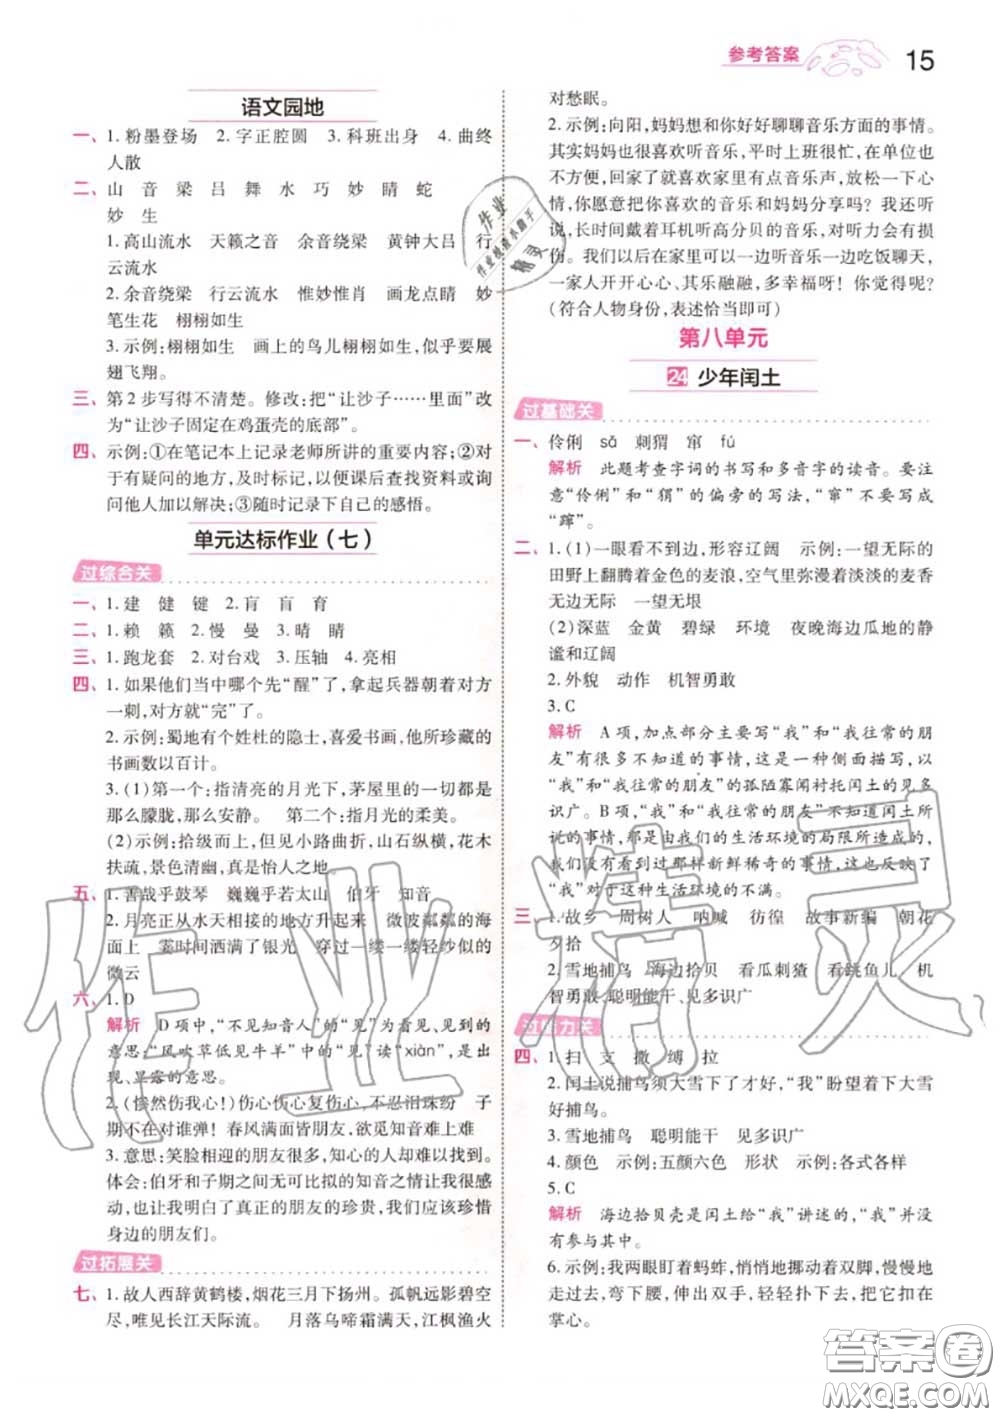 参考答案
15
语文园地
一、1.粉墨登场 2.字正腔圆 3.科班出身 4.曲终
人散
二、山 音 梁 吕 舞 水 巧 妙 睛 蛇
妙 生
1.高山流水 天籁之音 余音绕梁 黄钟大吕 行
云流水
2.余音绕梁 行云流水 惟妙惟肖 画龙点睛 妙
笔生花 栩栩如生
3.示例:栩栩如生 画上的鸟儿栩栩如生,似乎要展
翅飞翔。
三、第2步写得不清楚。修改:把“让沙子……里面”改
为“让沙子固定在鸡蛋壳的底部”。
四、示例:①在笔记本上记录老师所讲的重要内容;②对
于有疑问的地方,及时标记,以便课后查找资料或询
问他人加以解决;③随时记录下自己的感悟。
单元达标作业(七)
过综合关
一、1.建 健 键 2.肓 盲 育
二、1.赖 籁 2.慢 曼 3.晴 睛
三、1.跑龙套 2.对台戏 3.压轴 4.亮相
四、1.如果他们当中哪个先“醒”了,拿起兵器朝着对方
一刺,对方就“完”了。
2.示例:蜀地有个姓杜的隐士,喜爱书画,他所珍藏的
书画数以百计。
3.(1)第一个:指清亮的月光下,茅屋里的一切都是
那么朦胧,那么安静。 第二个:指月光的柔美。
(2)示例:拾级而上,但见小路曲折,山石纵横,花木
扶疏,景色清幽,真是怡人之地。
五、1.善哉乎鼓琴 巍巍乎若太山 伯牙 知音
2.月亮正从水天相接的地方升起来 微波粼粼的海
面上 霎时间洒满了银光 穿过一缕一缕轻纱似的
微云
六、1.D
解析 D项中,“不见知音人”的“见”为看见,遇见的
意思。“风吹草低见牛羊”中的“见”读“xiàn”,是出
现,显露的意思。
2.(惨然伤我心!)伤心伤心复伤心,不忍泪珠纷 子
期不在对谁弹! 春风满面皆朋友,欲觅知音难上难
3.意思:笑脸相迎的朋友很多,知心的人却难以找到。
体会:伯牙和子期之间无可比拟的知音之情让我感
动,也让我明白了真正的朋友的珍贵,我们应该珍惜
身边的朋友们。
过拓展关
七、1.故人西辞黄鹤楼,烟花三月下扬州。孤帆远影碧空
尽,唯见长江天际流。 月落乌啼霜满天,江枫渔火
对愁眠。
2.示例:向阳,妈妈想和你好好聊聊音乐方面的事情。
其实妈妈也很喜欢听音乐,平时上班很忙,在单位也
不方便,回家了就喜欢家里有点音乐声,放松一下心
情,你愿意把你喜欢的音乐和妈妈分享吗? 我还听
说,长时间戴着耳机听高分贝的音乐,对听力会有损
伤。我们以后在家里可以一边听音乐一边吃饭聊天,
一家人开开心心,其乐融融,多幸福呀! 你觉得呢?
(符合人物身份,表述恰当即可)
第八单元
24 少年闰土
过基础关
一、伶俐 sǎ 刺猬 窜 fú
解析 此题考查字词的书写和多音字的读音。要注
意“伶俐”和“猬”的偏旁的写法,“窜”不要写成
“蹿”。
二、1.(1)一眼看不到边,形容辽阔 示例:一望无际的
田野上翻腾着金色的麦浪,空气里弥漫着淡淡的麦香
无边无际 一望无垠
(2)深蓝 金黄 碧绿 环境 夜晚海边瓜地的静
谧和辽阔
2.外貌 动作 机智勇敢
3.C
解析 A项,加点部分主要写“我”和“我往常的朋
友”有很多不知道的事情,这是一种侧面描写,以
“我”和“我往常的朋友”的孤陋寡闻衬托闰土的见多
识广。B项,“我”和“我往常的朋友”不知道闰土所
说的事情,那是由我们的生活环境的局限所造成的,
我们没有看到过那样新鲜稀奇的事情,这也反映了
“我”对于这种生活环境的不满。
三、1.故乡 周树人 呐喊 彷徨 故事新编 朝花
夕拾
2.雪地捕鸟 海边拾贝 看瓜刺猹 看跳鱼儿 机
智勇敢 聪明能干 见多识广
过能力关
四、1.扫 支 撒 缚 拉
2.闰土说捕鸟须大雪下了才好,“我”盼望着下大雪
好捕鸟。
3.雪地捕鸟 聪明能干 见多识广
4.颜色 示例:五颜六色 形状 示例:各式各样
5.C
解析 海边拾贝壳是闰土给“我”讲述的,“我”并没
有参与其中。
6.示例:我两眼盯着蚂蚱,悄悄地挪动着双脚,慢慢地
走过去,弯下腰,伸出双手,轻轻扑下去,把它抓在
掌心。
作业精灵
答案圈
MXQE.COM